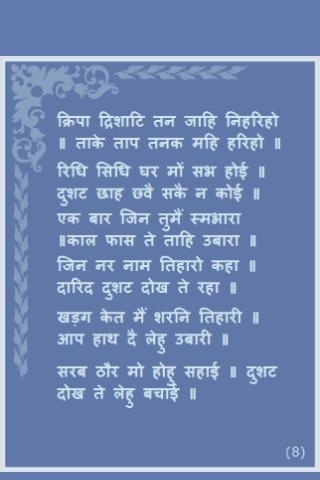 क्रिपा द्रिशाटि तन जाहि निहरिहो
॥ ताके ताप तनक महि हरिहो ॥
रिधि सिधि घर मों सभ होई ॥
दुशट छाह छवै सकै न कोई ॥
एक बार जिन तुमैं स्मभारा
॥काल फास ते ताहि उबारा ॥
जिन नर नाम तिहारो कहा ॥
दारिद दुशट दोख ते रहा ॥
खड़ग केत मैं शरनि तिहारी ॥
आप हाथ दै लेहु उबारी ॥
सरब ठौर मो होहु सहाई ॥ दुशट
दोख ते लेहु बचाई ॥
(8)